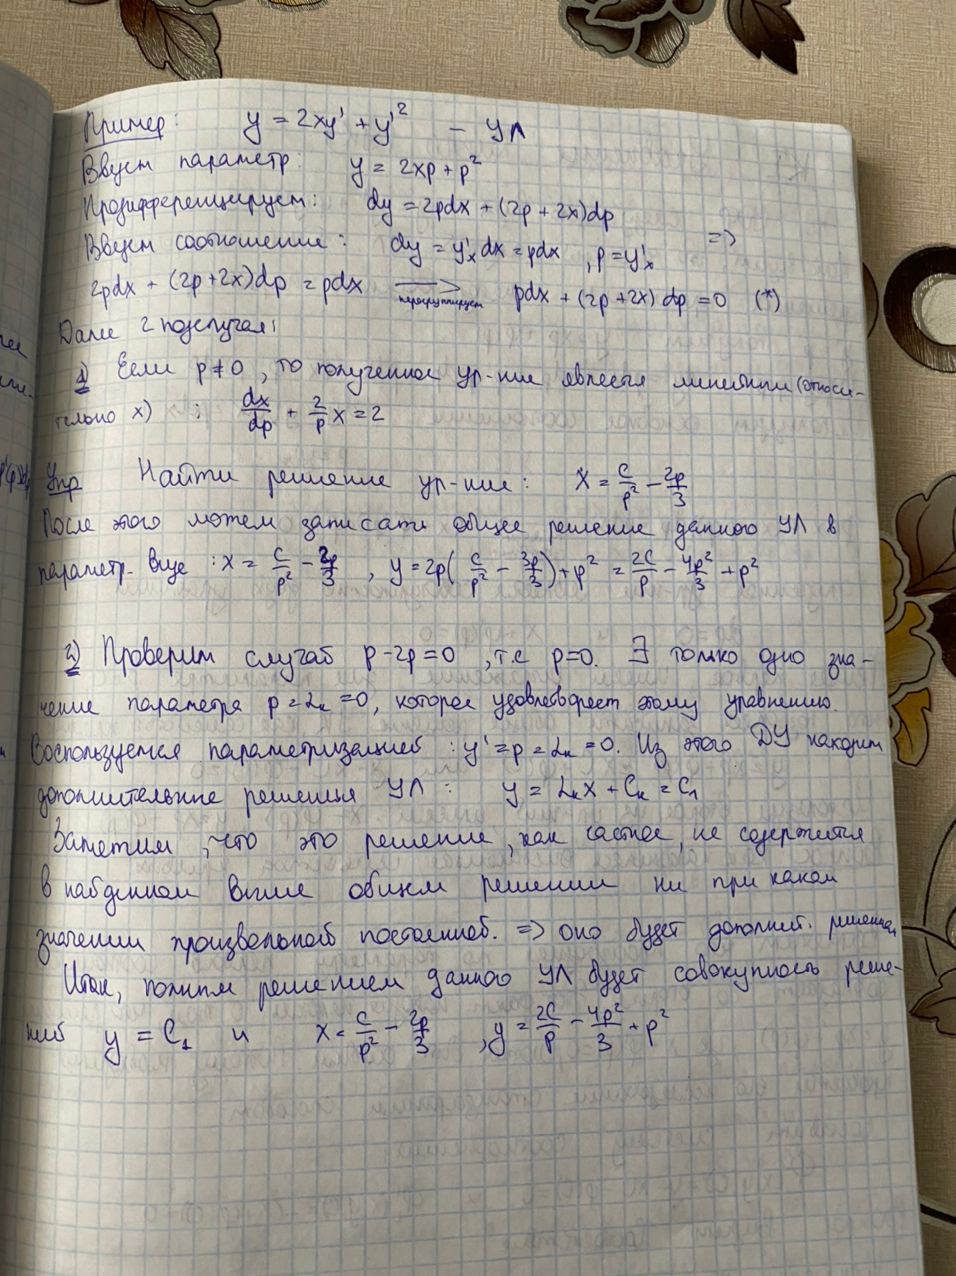 Пример: y = 2xy' + y'² – УЛ
Введем параметр: y = 2xp + p²
Продифференцируем: dy = 2pdx + (2p + 2x)dp
Введем соотношение: dy = y'ₓdx = pdx, p = y'ₓ =>
2pdx + (2p + 2x)dp = pdx → перегруппируем pdx + (2p + 2x)dp = 0 (*)
Далее 2 подслучая:
1) Если p ≠ 0, то полученное ур-ние является линейным (относи-
тельно x) : dx/dp + 2/p x = 2
Упр Найти решение ур-ние: x = c/p² - 2p/3
После этого можем записать общее решение данного УЛ в
параметр. виде : x = c/p² - 2p/3, y = 2p(c/p² - 3p/3) + p² = 2C/p - 4p²/3 + p²
2) Проверим случай p - 2p = 0, т.е p = 0. ∃ только одно зна-
чение параметра p = αₖ = 0, которое удовлетворяет этому уравнению.
Воспользуемся параметризацией : y' = p = αₖ = 0. Из этого ДУ находим
дополнительные решения УЛ : y = αₖx + Cₖ = C₁
Заметим, что это решение, как частное, не содержится
в найденном выше общем решении ни при каком
значении произвольной постоянной. => оно будет дополнит. решением
Итак, полным решением данного УЛ будет совокупность реше-
ний y = C₁ и x = c/p² - 2p/3, y = 2C/p - 4p²/3 + p²